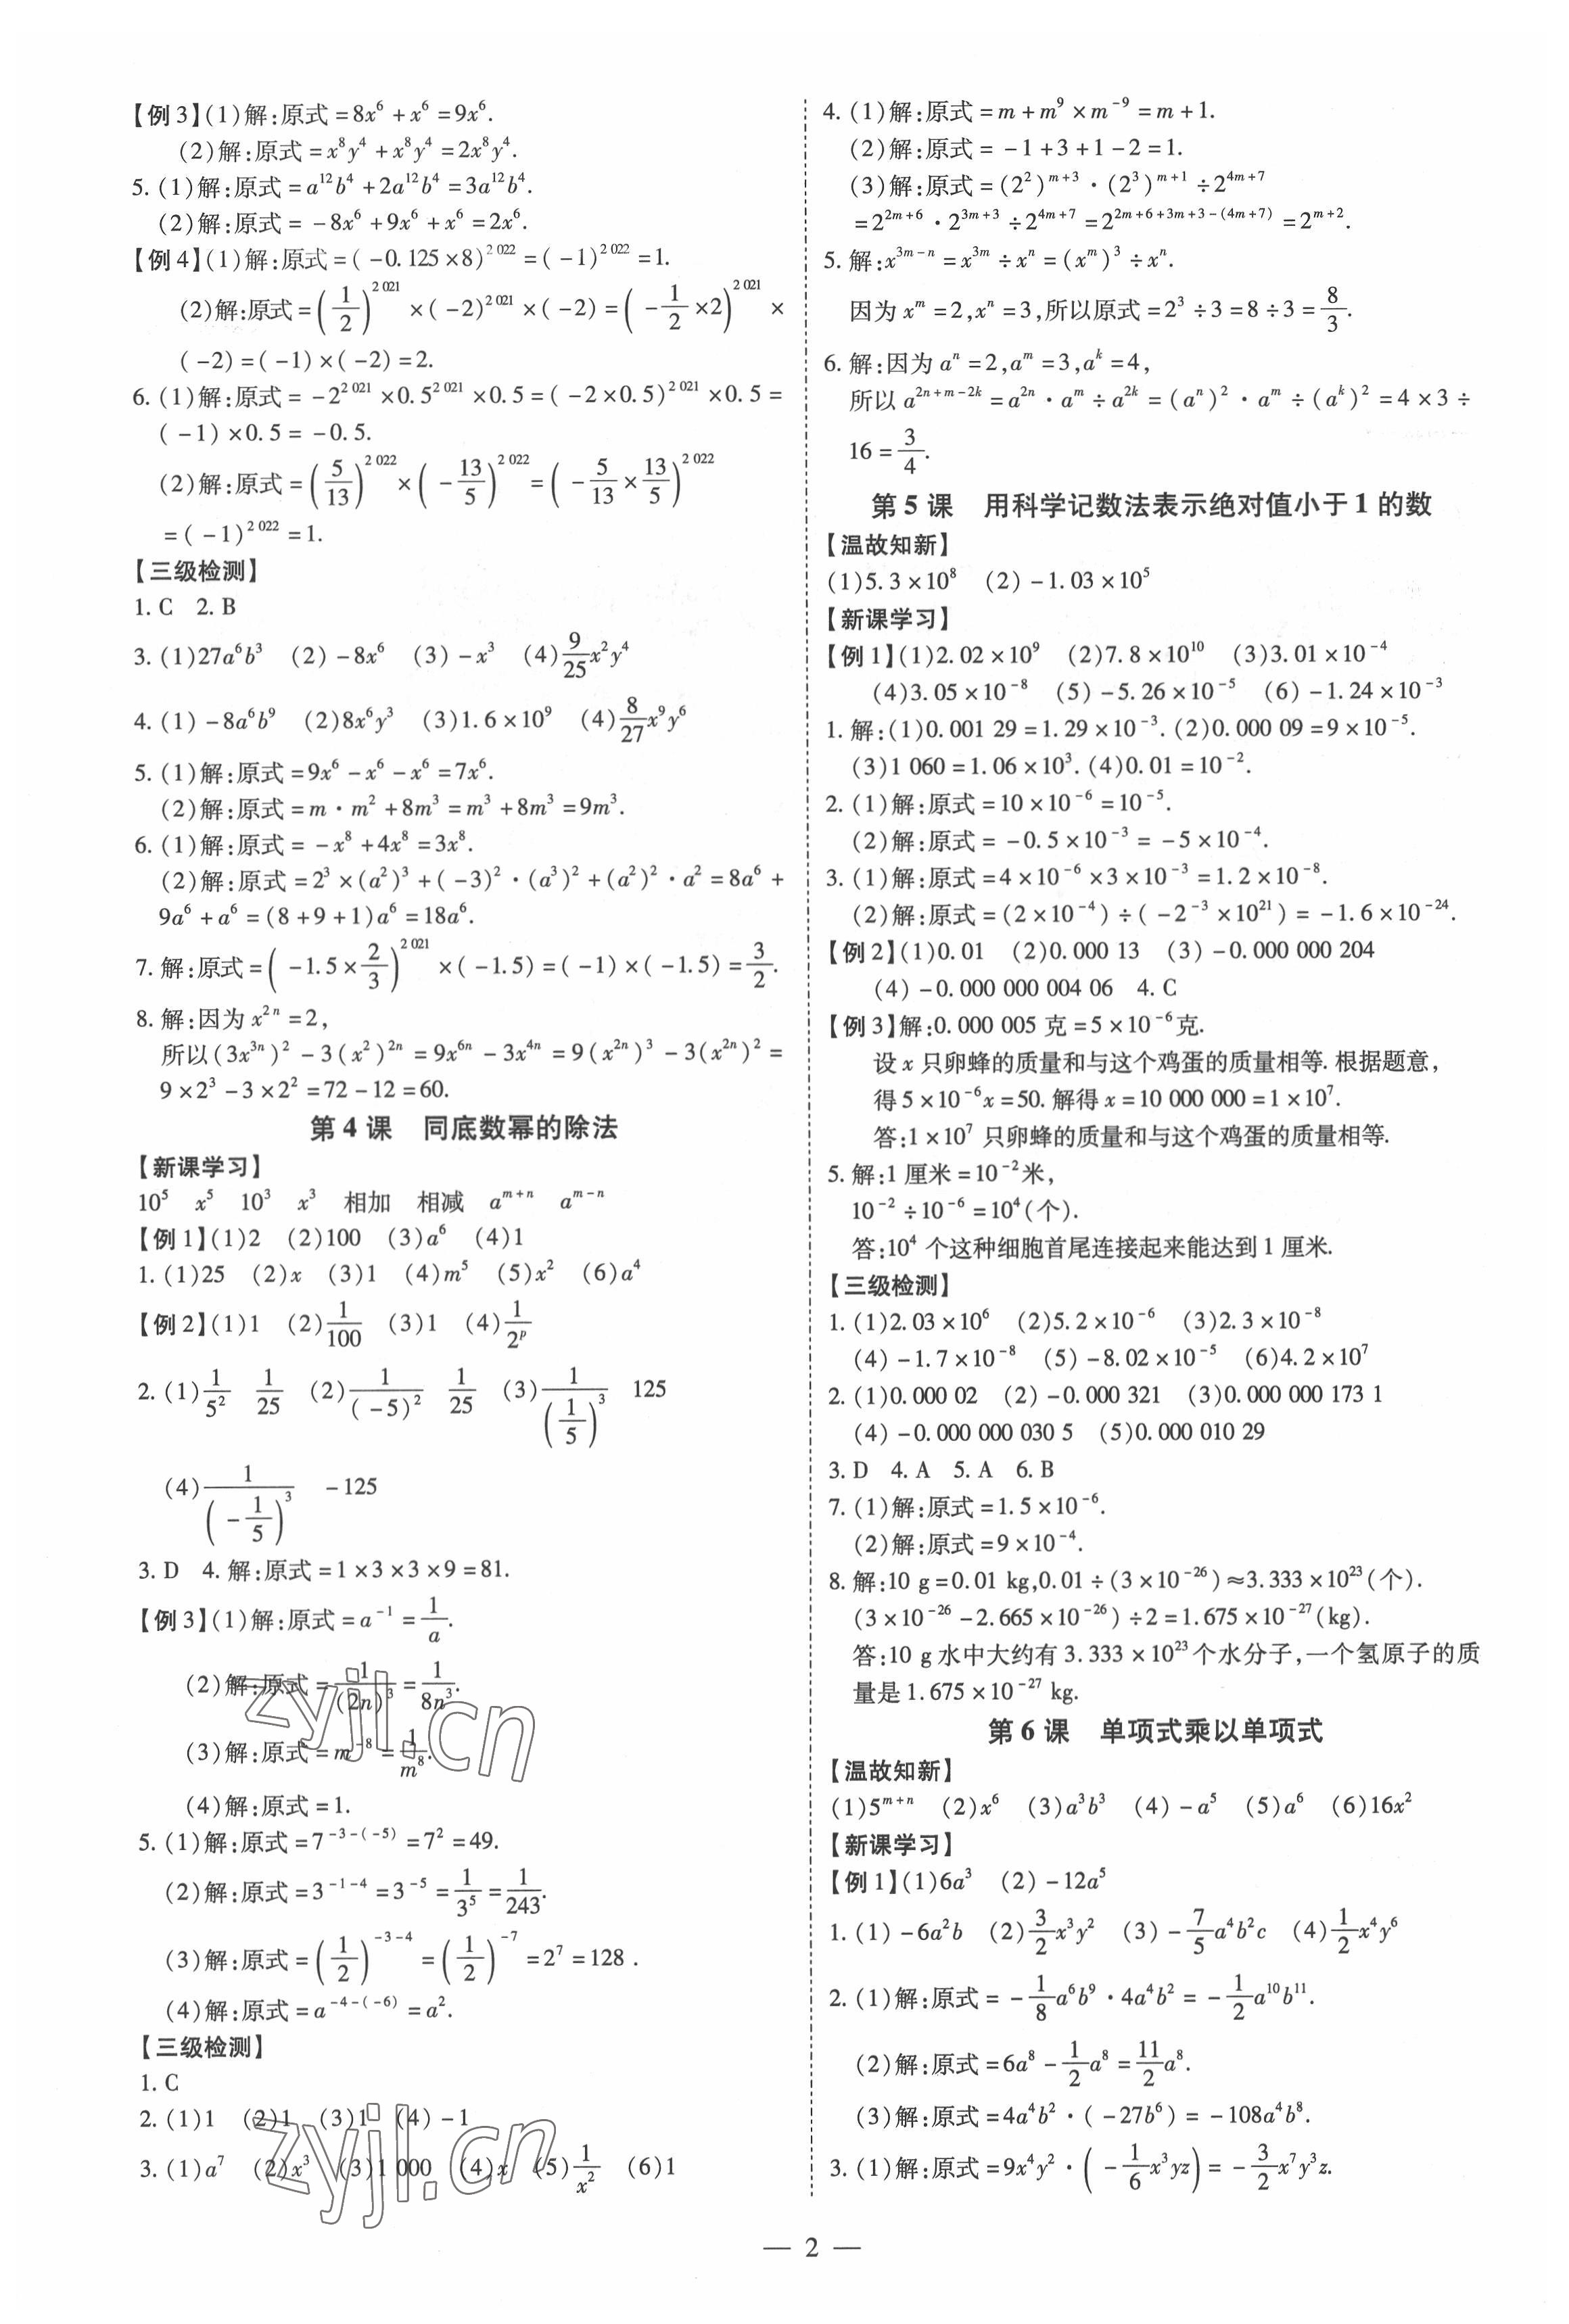 【例3】(1)解:原式=8x⁶+x⁶=9x⁶.
(2)解:原式=x⁸y⁴+x⁸y⁴=2x⁸y⁴.
5. (1)解:原式=a¹²b⁴+2a¹²b⁴=3a¹²b⁴.
(2)解:原式=-8x⁶+9x⁶+x⁶=2x⁶.
【例4】(1)解:原式=(-0.125×8)^{2 022}=(-1)^{2 022}=1.
(2)解:原式=(1/2)^{2 021}×(-2)^{2 021}×(-2)=(-1/2×2)^{2 021}×
(-2)=(-1)×(-2)=2.
6. (1)解:原式=-2^{2 021}×0.5^{2 021}×0.5=(-2×0.5)^{2 021}×0.5=
(-1)×0.5=-0.5.
(2)解:原式=(5/13)^{2 022}×(-13/5)^{2 022}=(-5/13×13/5)^{2 022}
=(-1)^{2 022}=1.
【三级检测】
1. C 2. B
3. (1)27a⁶b³ (2)-8x⁶ (3)-x³ (4)9/25x²y⁴
4. (1)-8a⁶b⁹ (2)8x⁶y³ (3)1.6×10⁹ (4)8/27x⁹y⁶
5. (1)解:原式=9x⁶-x⁶-x⁶=7x⁶.
(2)解:原式=m·m²+8m³=m³+8m³=9m³.
6. (1)解:原式=-x⁸+4x⁸=3x⁸.
(2)解:原式=2³×(a²)³+(-3)²·(a³)²+(a²)²·a²=8a⁶+
9a⁶+a⁶=(8+9+1)a⁶=18a⁶.
7. 解:原式=(-1.5×2/3)^{2 021}×(-1.5)=(-1)×(-1.5)=3/2.
8. 解:因为x^{2n}=2,
所以(3x^{3n})²-3(x²)^{2n}=9x^{6n}-3x^{4n}=9(x^{2n})³-3(x^{2n})²=
9×2³-3×2²=72-12=60.
第4课 同底数幂的除法
【新课学习】
10⁵ x⁵ 10³ x³ 相加 相减 a^{m+n} a^{m-n}
【例1】(1)2 (2)100 (3)a⁶ (4)1
1. (1)25 (2)x (3)1 (4)m⁵ (5)x² (6)a⁴
【例2】(1)1 (2)1/100 (3)1 (4)1/2^p
2. (1)1/5² 1/25 (2)1/(-5)² 1/25 (3)1/(1/5)³ 125
(4)1/(-1/5)³ -125
3. D 4. 解:原式=1×3×3×9=81.
【例3】(1)解:原式=a⁻¹=1/a.
(2)解:原式=1/(2n)³=1/8n³.
(3)解:原式=m⁻⁸=1/m⁸.
(4)解:原式=1.
5. (1)解:原式=7^{-3-(-5)}=7²=49.
(2)解:原式=3^{-1-4}=3⁻⁵=1/3⁵=1/243.
(3)解:原式=(1/2)^{-3-4}=(1/2)^{-7}=2⁷=128.
(4)解:原式=a^{-4-(-6)}=a².
【三级检测】
1. C
2. (1)1 (2)1 (3)1 (4)-1
3. (1)a⁷ (2)x³ (3)1 000 (4)x (5)1/x² (6)1
4. (1)解:原式=m+m⁹×m⁻⁹=m+1.
(2)解:原式=-1+3+1-2=1.
(3)解:原式=(2²)^{m+3}·(2³)^{m+1}÷2^{4m+7}
=2^{2m+6}·2^{3m+3}÷2^{4m+7}=2^{2m+6+3m+3-(4m+7)}=2^{m+2}.
5. 解:x^{3m-n}=x^{3m}÷x^n=(x^m)³÷x^n.
因为x^m=2,x^n=3,所以原式=2³÷3=8÷3=8/3.
6. 解:因为a^n=2,a^m=3,a^k=4,
所以a^{2n+m-2k}=a^{2n}·a^m÷a^{2k}=(a^n)²·a^m÷(a^k)²=4×3÷
16=3/4.
第5课 用科学记数法表示绝对值小于1的数
【温故知新】
(1)5.3×10⁸ (2)-1.03×10⁵
【新课学习】
【例1】(1)2.02×10⁹ (2)7.8×10¹⁰ (3)3.01×10⁻⁴
(4)3.05×10⁻⁸ (5)-5.26×10⁻⁵ (6)-1.24×10⁻³
1. 解:(1)0.001 29=1.29×10⁻³. (2)0.000 09=9×10⁻⁵.
(3)1 060=1.06×10³. (4)0.01=10⁻².
2. (1)解:原式=10×10⁻⁶=10⁻⁵.
(2)解:原式=-0.5×10⁻³=-5×10⁻⁴.
3. (1)解:原式=4×10⁻⁶×3×10⁻³=1.2×10⁻⁸.
(2)解:原式=(2×10⁻⁴)÷(-2⁻³×10²¹)=-1.6×10⁻²⁴.
【例2】(1)0.01 (2)0.000 13 (3)-0.000 000 204
(4)-0.000 000 004 06 4. C
【例3】解:0.000 005克=5×10⁻⁶克.
设x只卵蜂的质量和与这个鸡蛋的质量相等. 根据题意,
得5×10⁻⁶x=50. 解得x=10 000 000=1×10⁷.
答:1×10⁷只卵蜂的质量和与这个鸡蛋的质量相等.
5. 解:1厘米=10⁻²米,
10⁻²÷10⁻⁶=10⁴(个).
答:10⁴个这种细胞首尾连接起来能达到1厘米.
【三级检测】
1. (1)2.03×10⁶ (2)5.2×10⁻⁶ (3)2.3×10⁻⁸
(4)-1.7×10⁻⁸ (5)-8.02×10⁻⁵ (6)4.2×10⁷
2. (1)0.000 02 (2)-0.000 321 (3)0.000 000 173 1
(4)-0.000 000 030 5 (5)0.000 010 29
3. D 4. A 5. A 6. B
7. (1)解:原式=1.5×10⁻⁶.
(2)解:原式=9×10⁻⁴.
8. 解:10 g=0.01 kg,0.01÷(3×10⁻²⁶)≈3.333×10²³(个).
(3×10⁻²⁶-2.665×10⁻²⁶)÷2=1.675×10⁻²⁷(kg).
答:10 g水中大约有3.333×10²³个水分子,一个氢原子的质
量是1.675×10⁻²⁷ kg.
第6课 单项式乘以单项式
【温故知新】
(1)5^{m+n} (2)x⁶ (3)a³b³ (4)-a⁵ (5)a⁶ (6)16x²
【新课学习】
【例1】(1)6a³ (2)-12a⁵
1. (1)-6a²b (2)3/2x³y² (3)-7/5a⁴b²c (4)1/2x⁴y⁶
2. (1)解:原式=-1/8a⁶b⁹·4a⁴b²=-1/2a¹⁰b¹¹.
(2)解:原式=6a⁸-1/2a⁸=11/2a⁸.
(3)解:原式=4a⁴b²·(-27b⁶)=-108a⁴b⁸.
3. (1)解:原式=9x⁴y²·(-1/6x³yz)=-3/2x⁷y³z.
— 2 —
zyjl.cn
zyjl.cn